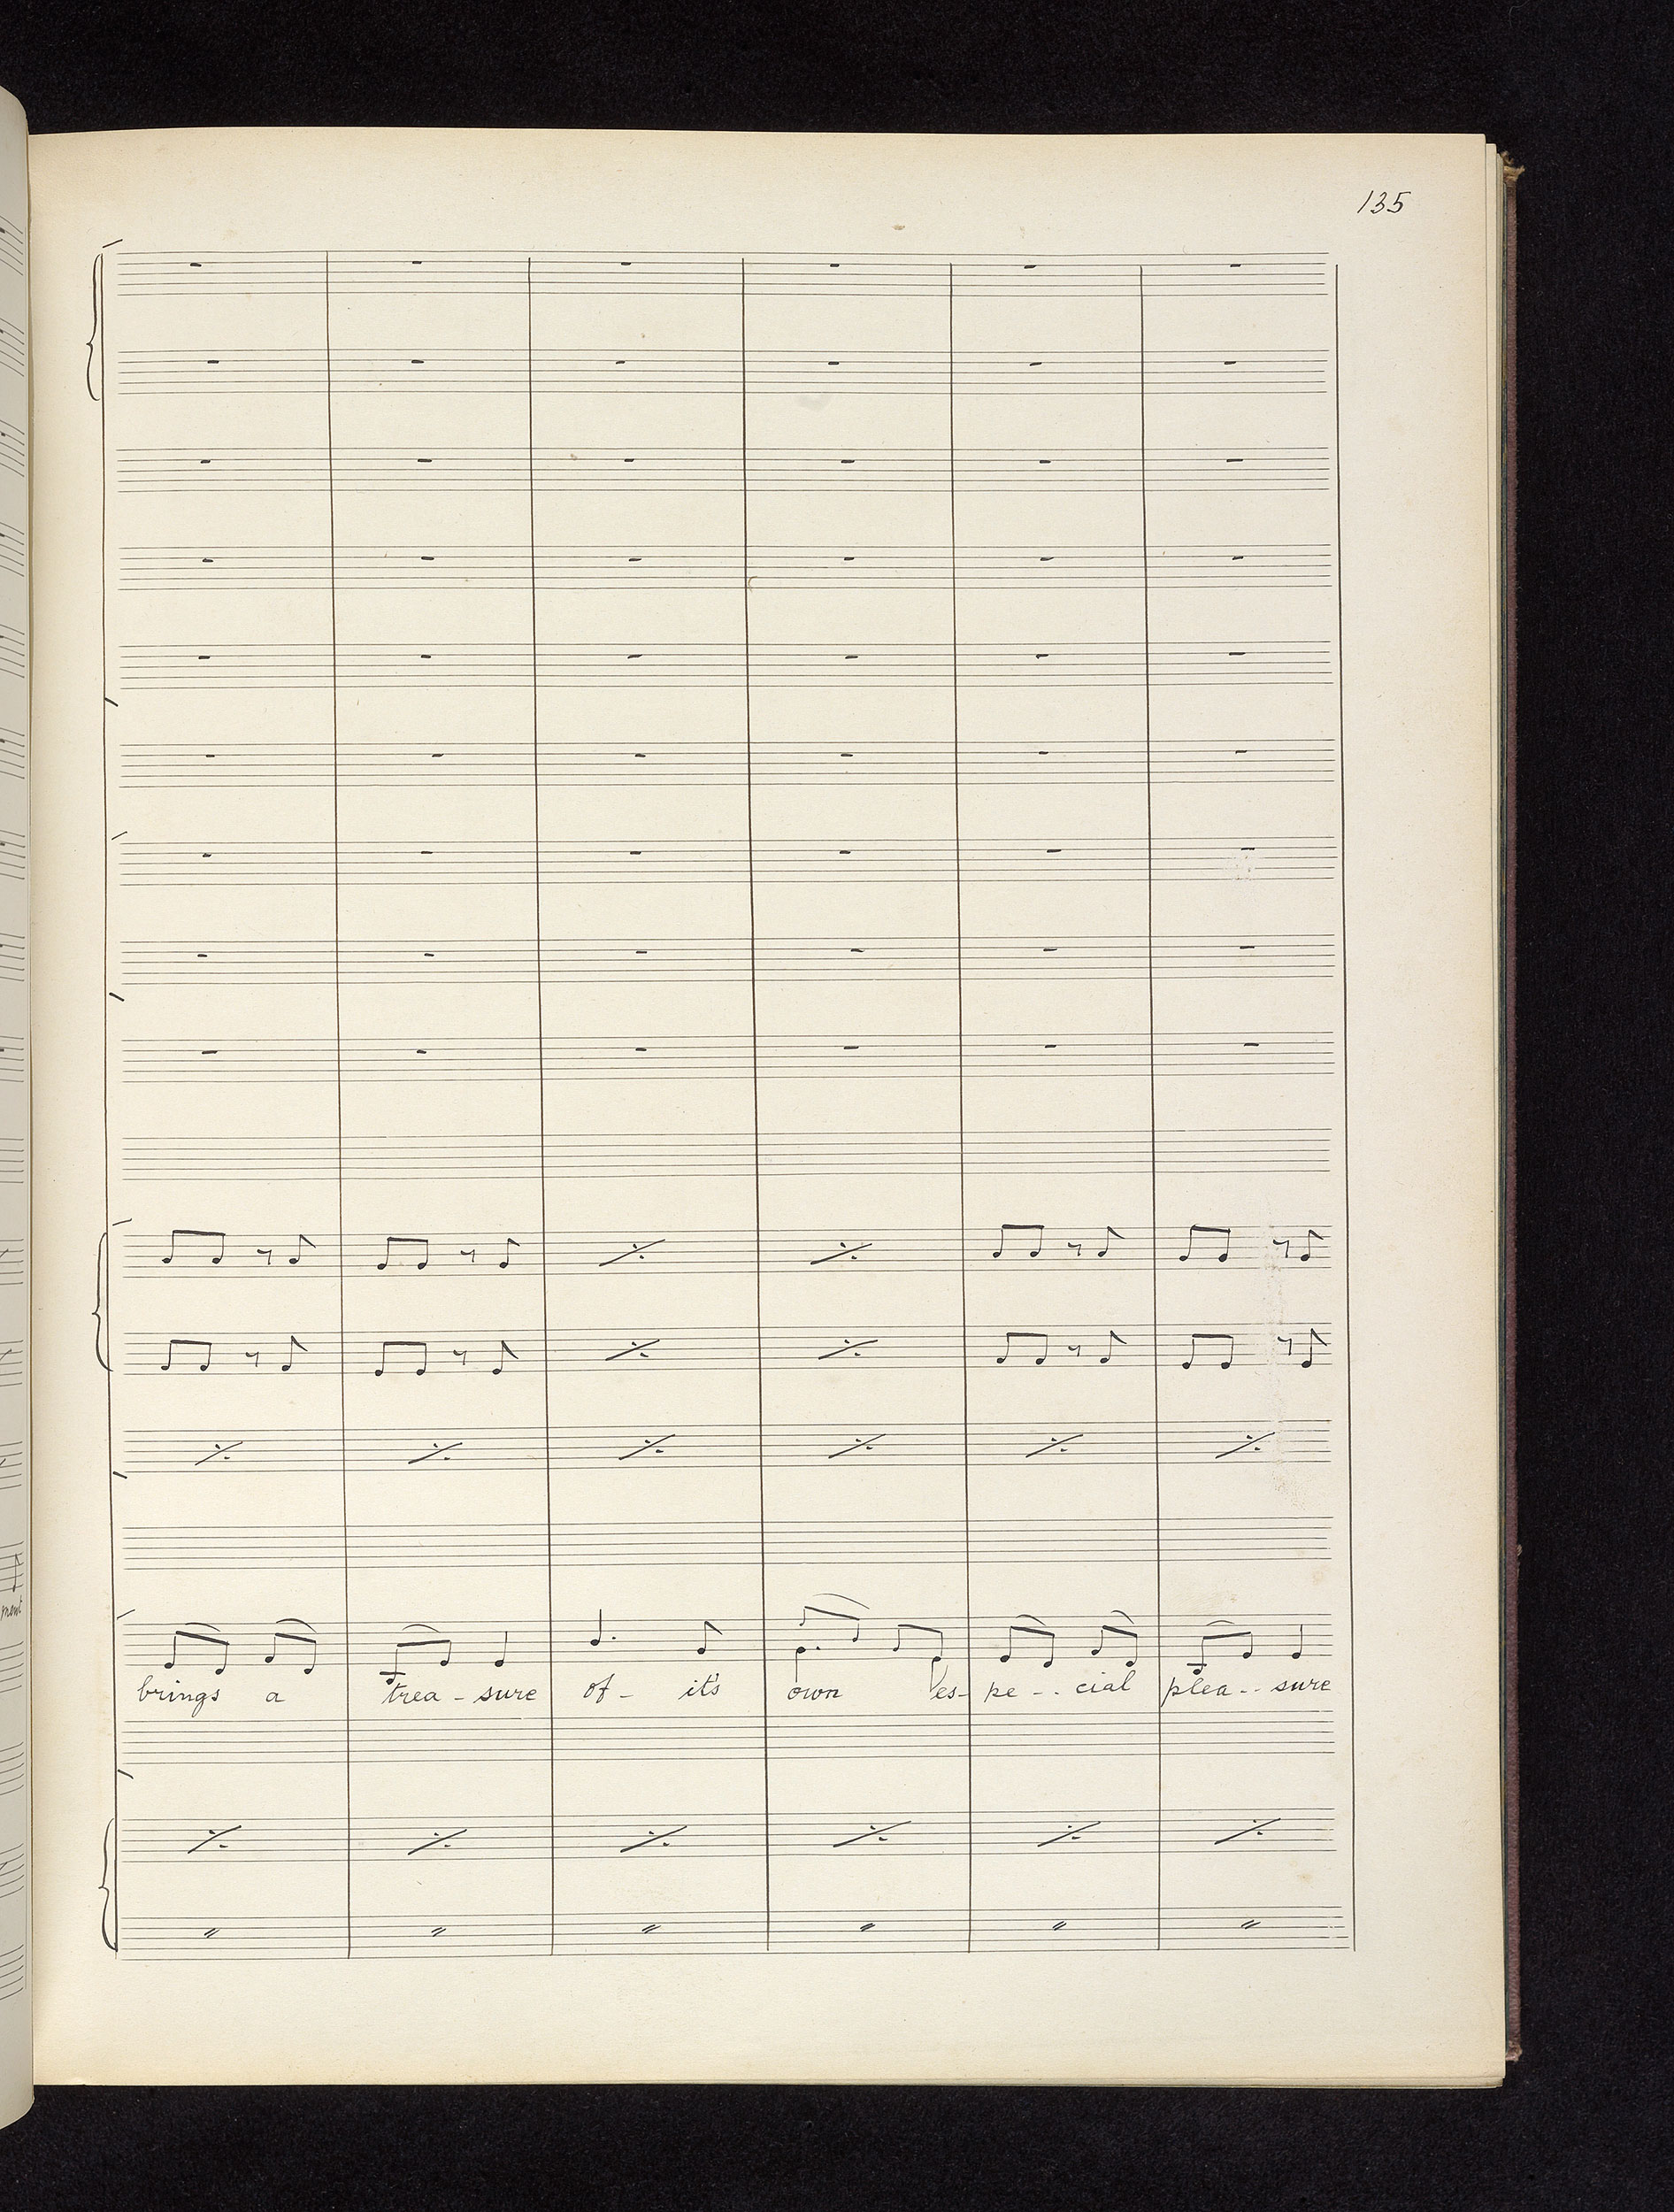 135
ment
brings a trea - sure of - it's own es- pe - - cial plea - - sure